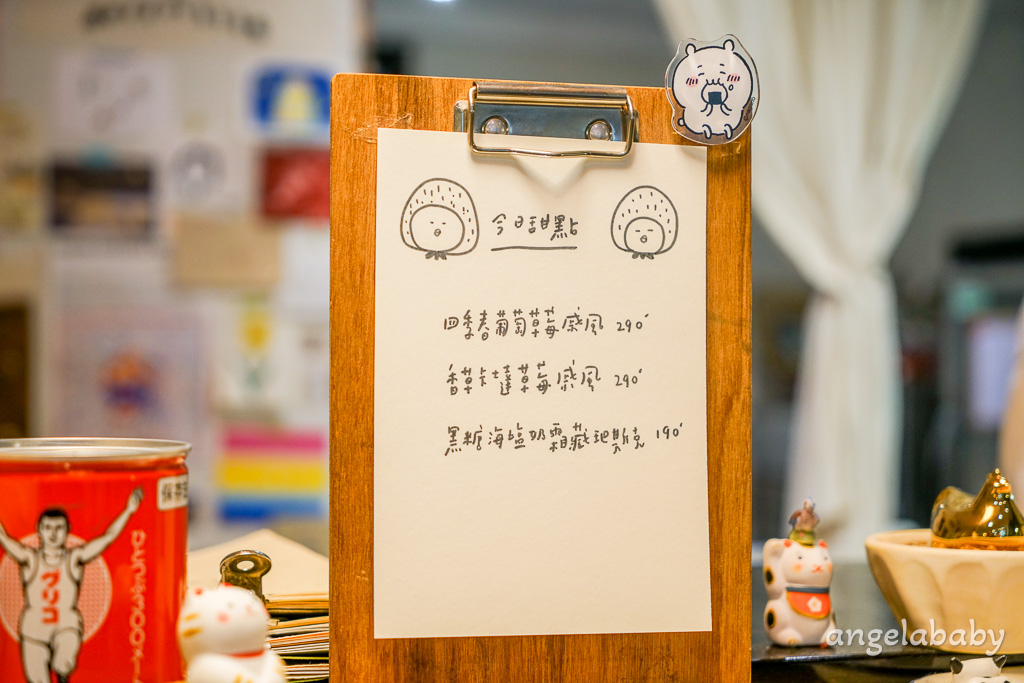 今日甜點
四季春葡萄草莓戚風 290
香草卡達草莓戚風 290
黑糖海塩奶霜藏巴斯克 190
グリコ
angelababy